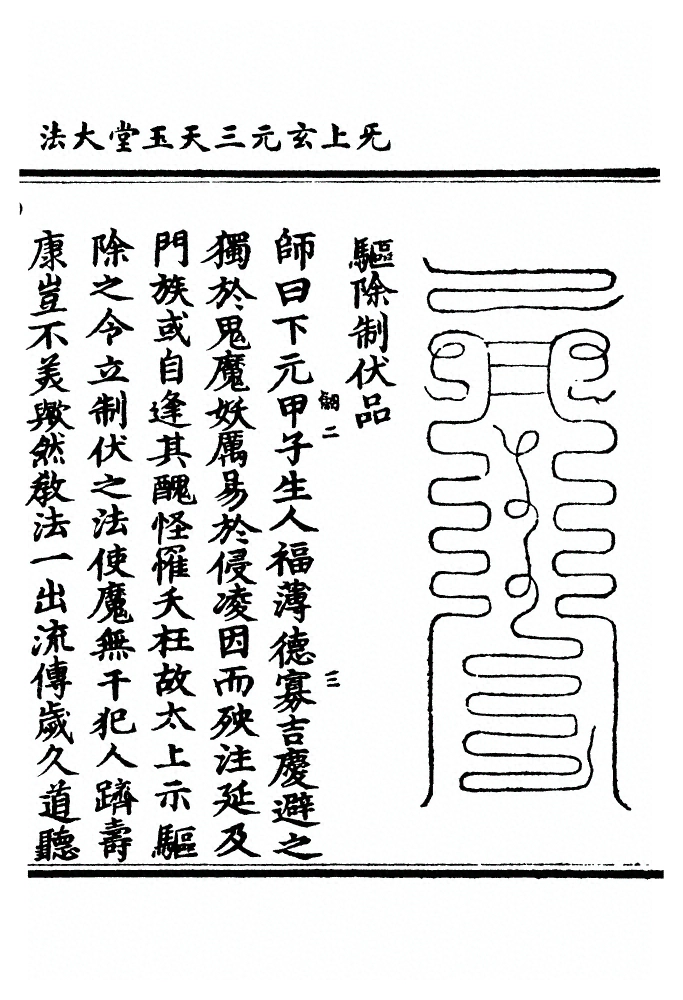 法大堂玉天三元玄上旡
驅除制伏品
師曰下元甲子生人福薄德寡吉慶避之
獨於鬼魔妖厲易於侵凌因而殃注延及
門族或自逢其醜怪罹夭枉故太上示驅
除之令立制伏之法使魔無干犯人躋壽
康豈不美歟然教法一出流傳歲久道聽
二
三